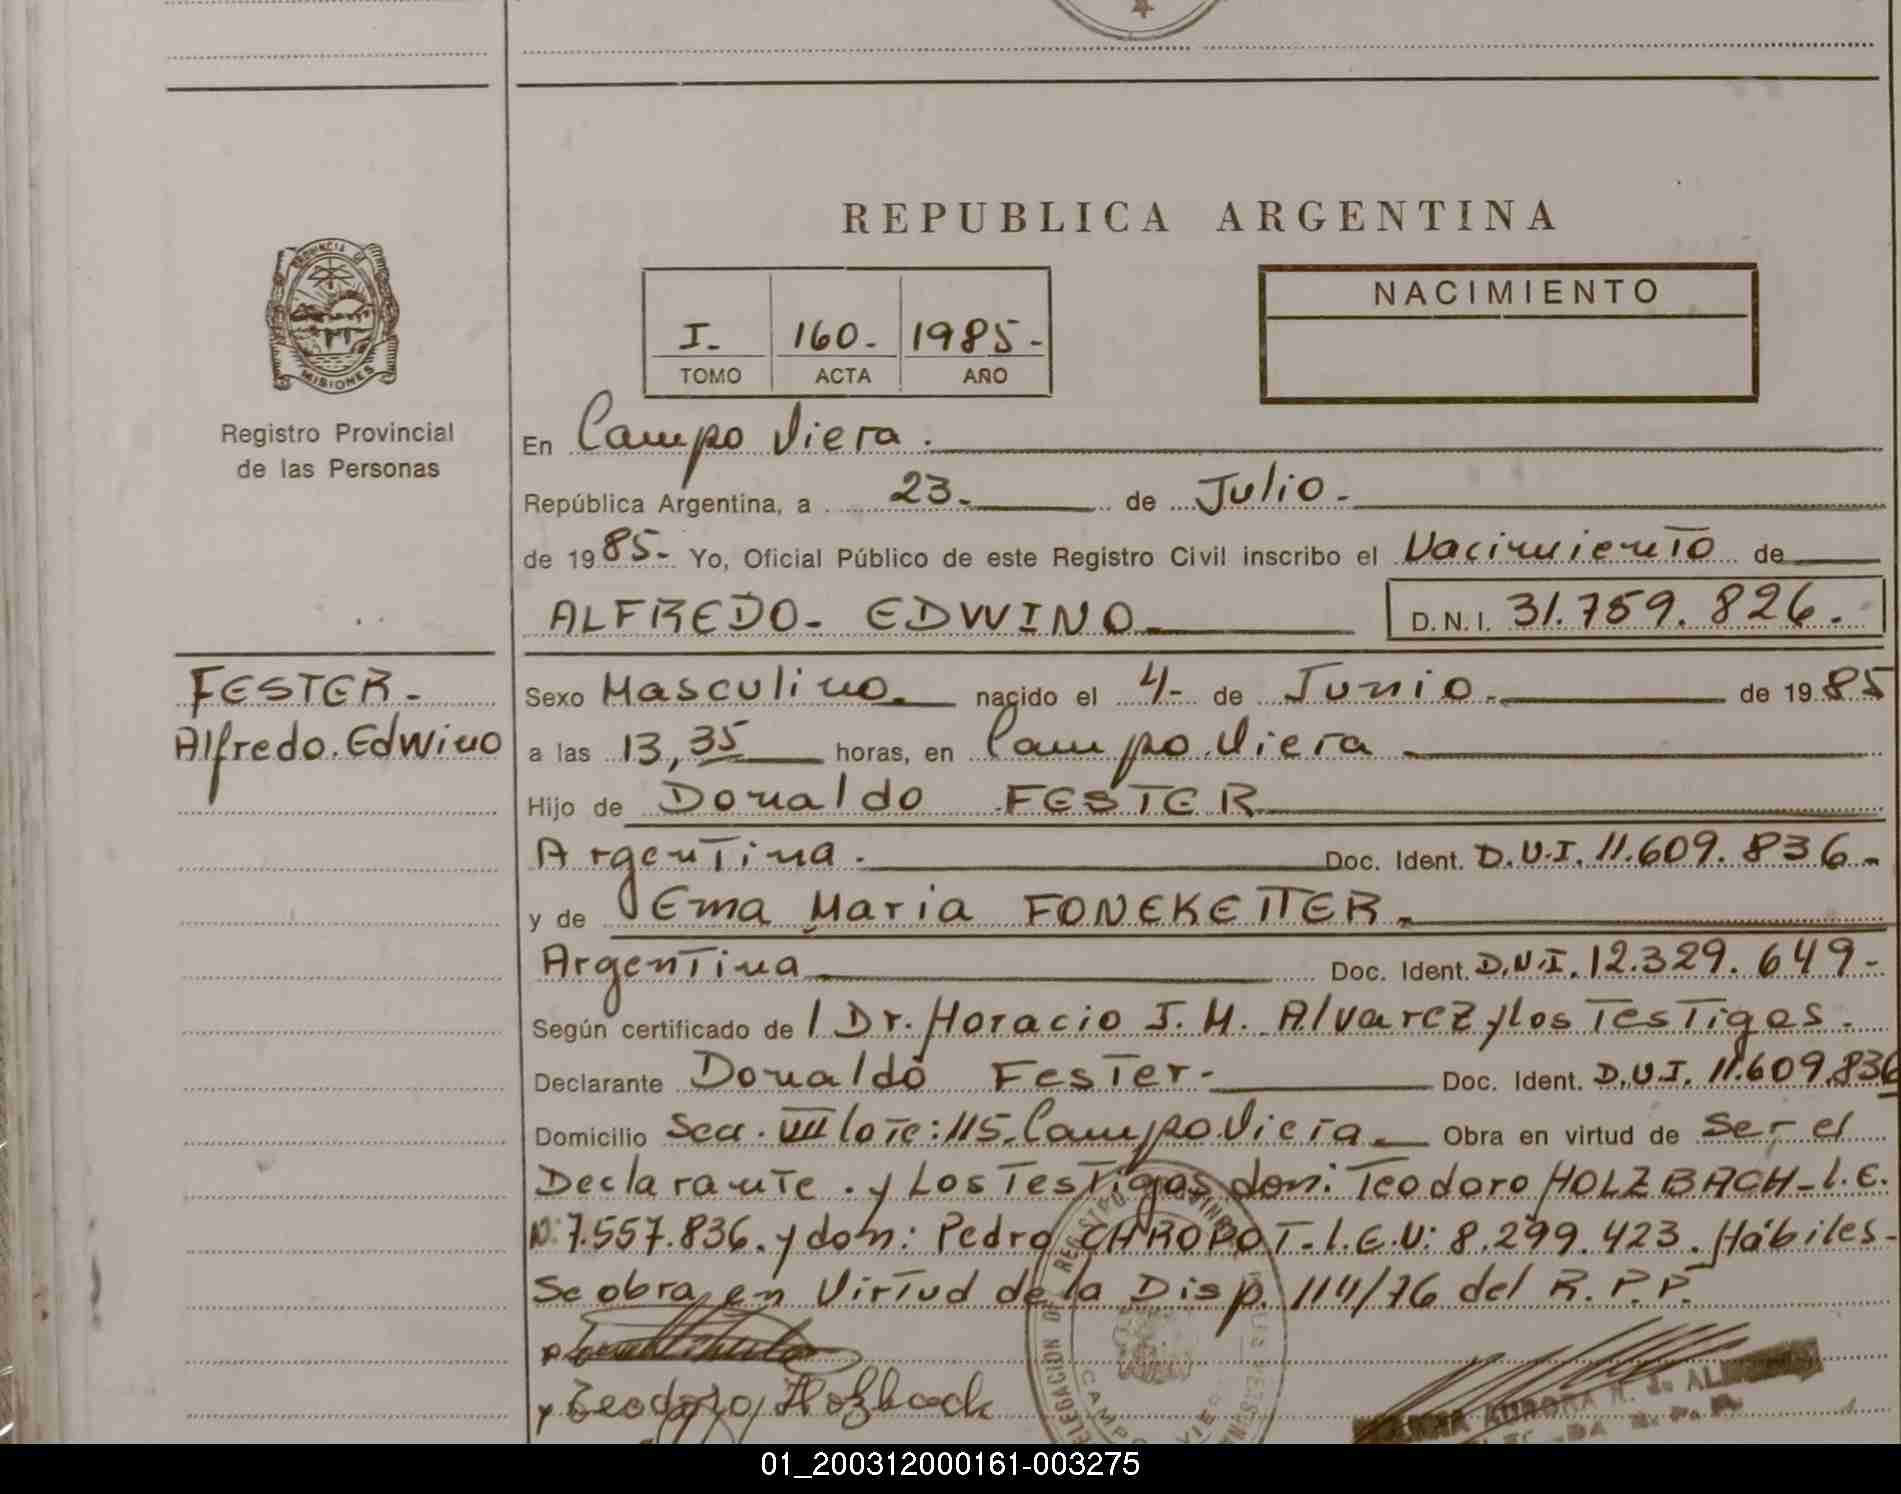 REPUBLICA ARGENTINA
PROVINCIA DE
MISIONES
Registro Provincial
de las Personas
I. 160. 1985.
TOMO ACTA AÑO
NACIMIENTO
En Campo Viera.
República Argentina, a 23. de Julio.
de 1985. Yo, Oficial Público de este Registro Civil inscribo el Nacimiento de
ALFREDO. EDWINO D.N.I. 31.759.826.
FESTER.
Alfredo. Edwino
Sexo Masculino. nacido el 4 de Junio. de 1985
a las 13,35 horas, en Campo Viera
Hijo de Donaldo FESTER
Argentina. Doc. Ident. D.N.I. 11.609.836.
y de Ema Maria FONEKETTER.
Argentina Doc. Ident. D.N.I. 12.329.649
Según certificado de l Dr. Horacio J. M. Alvarez y los Testigos.
Declarante Donaldo Fester. Doc. Ident. D.N.I. 11.609.836
Domicilio Sec. VIII lote: 115. Campo Viera. Obra en virtud de Ser el
Declarante. y Los Testigos don: Teodoro HOLZBACH. L.E.
N: 7.557.836. y don: Pedro CHROPOT. L.E.N: 8.299.423. Hábiles.
Se obra en Virtud de la Disp. 114/76 del R.P.P.
y Teodoro Holzbach
DELEGACION DE REGISTRO
CAMPO VIERA
AURORA N. de
01_200312000161-003275